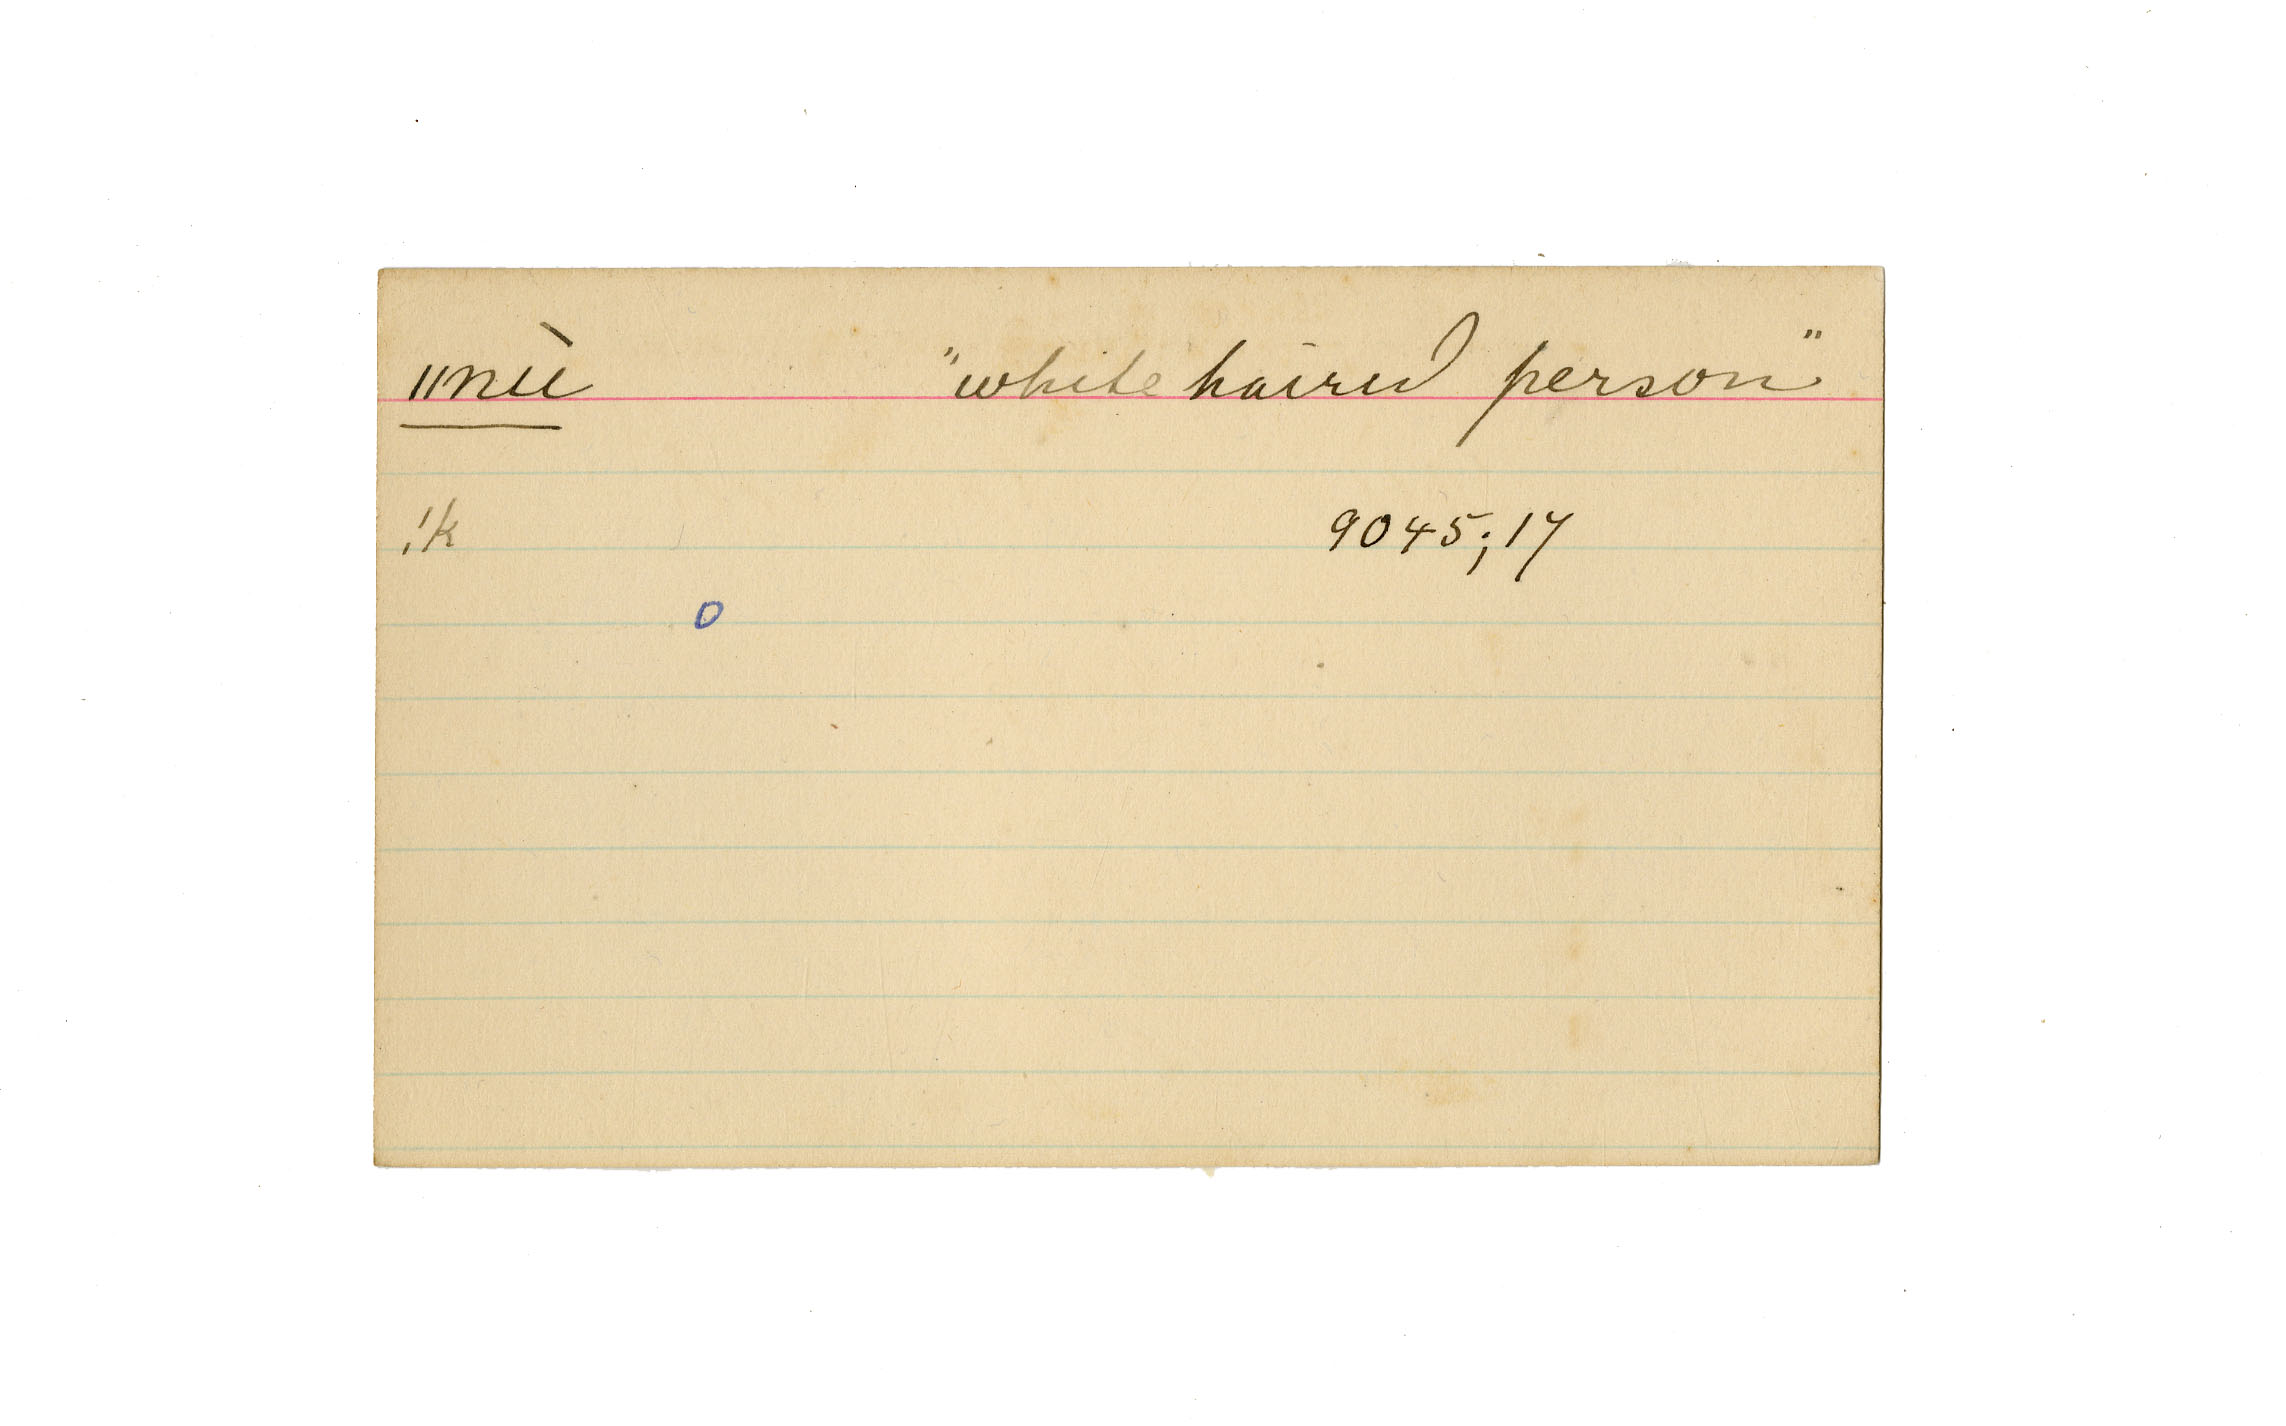 ǁnuì "white haired person"
!k 9045; 17
o